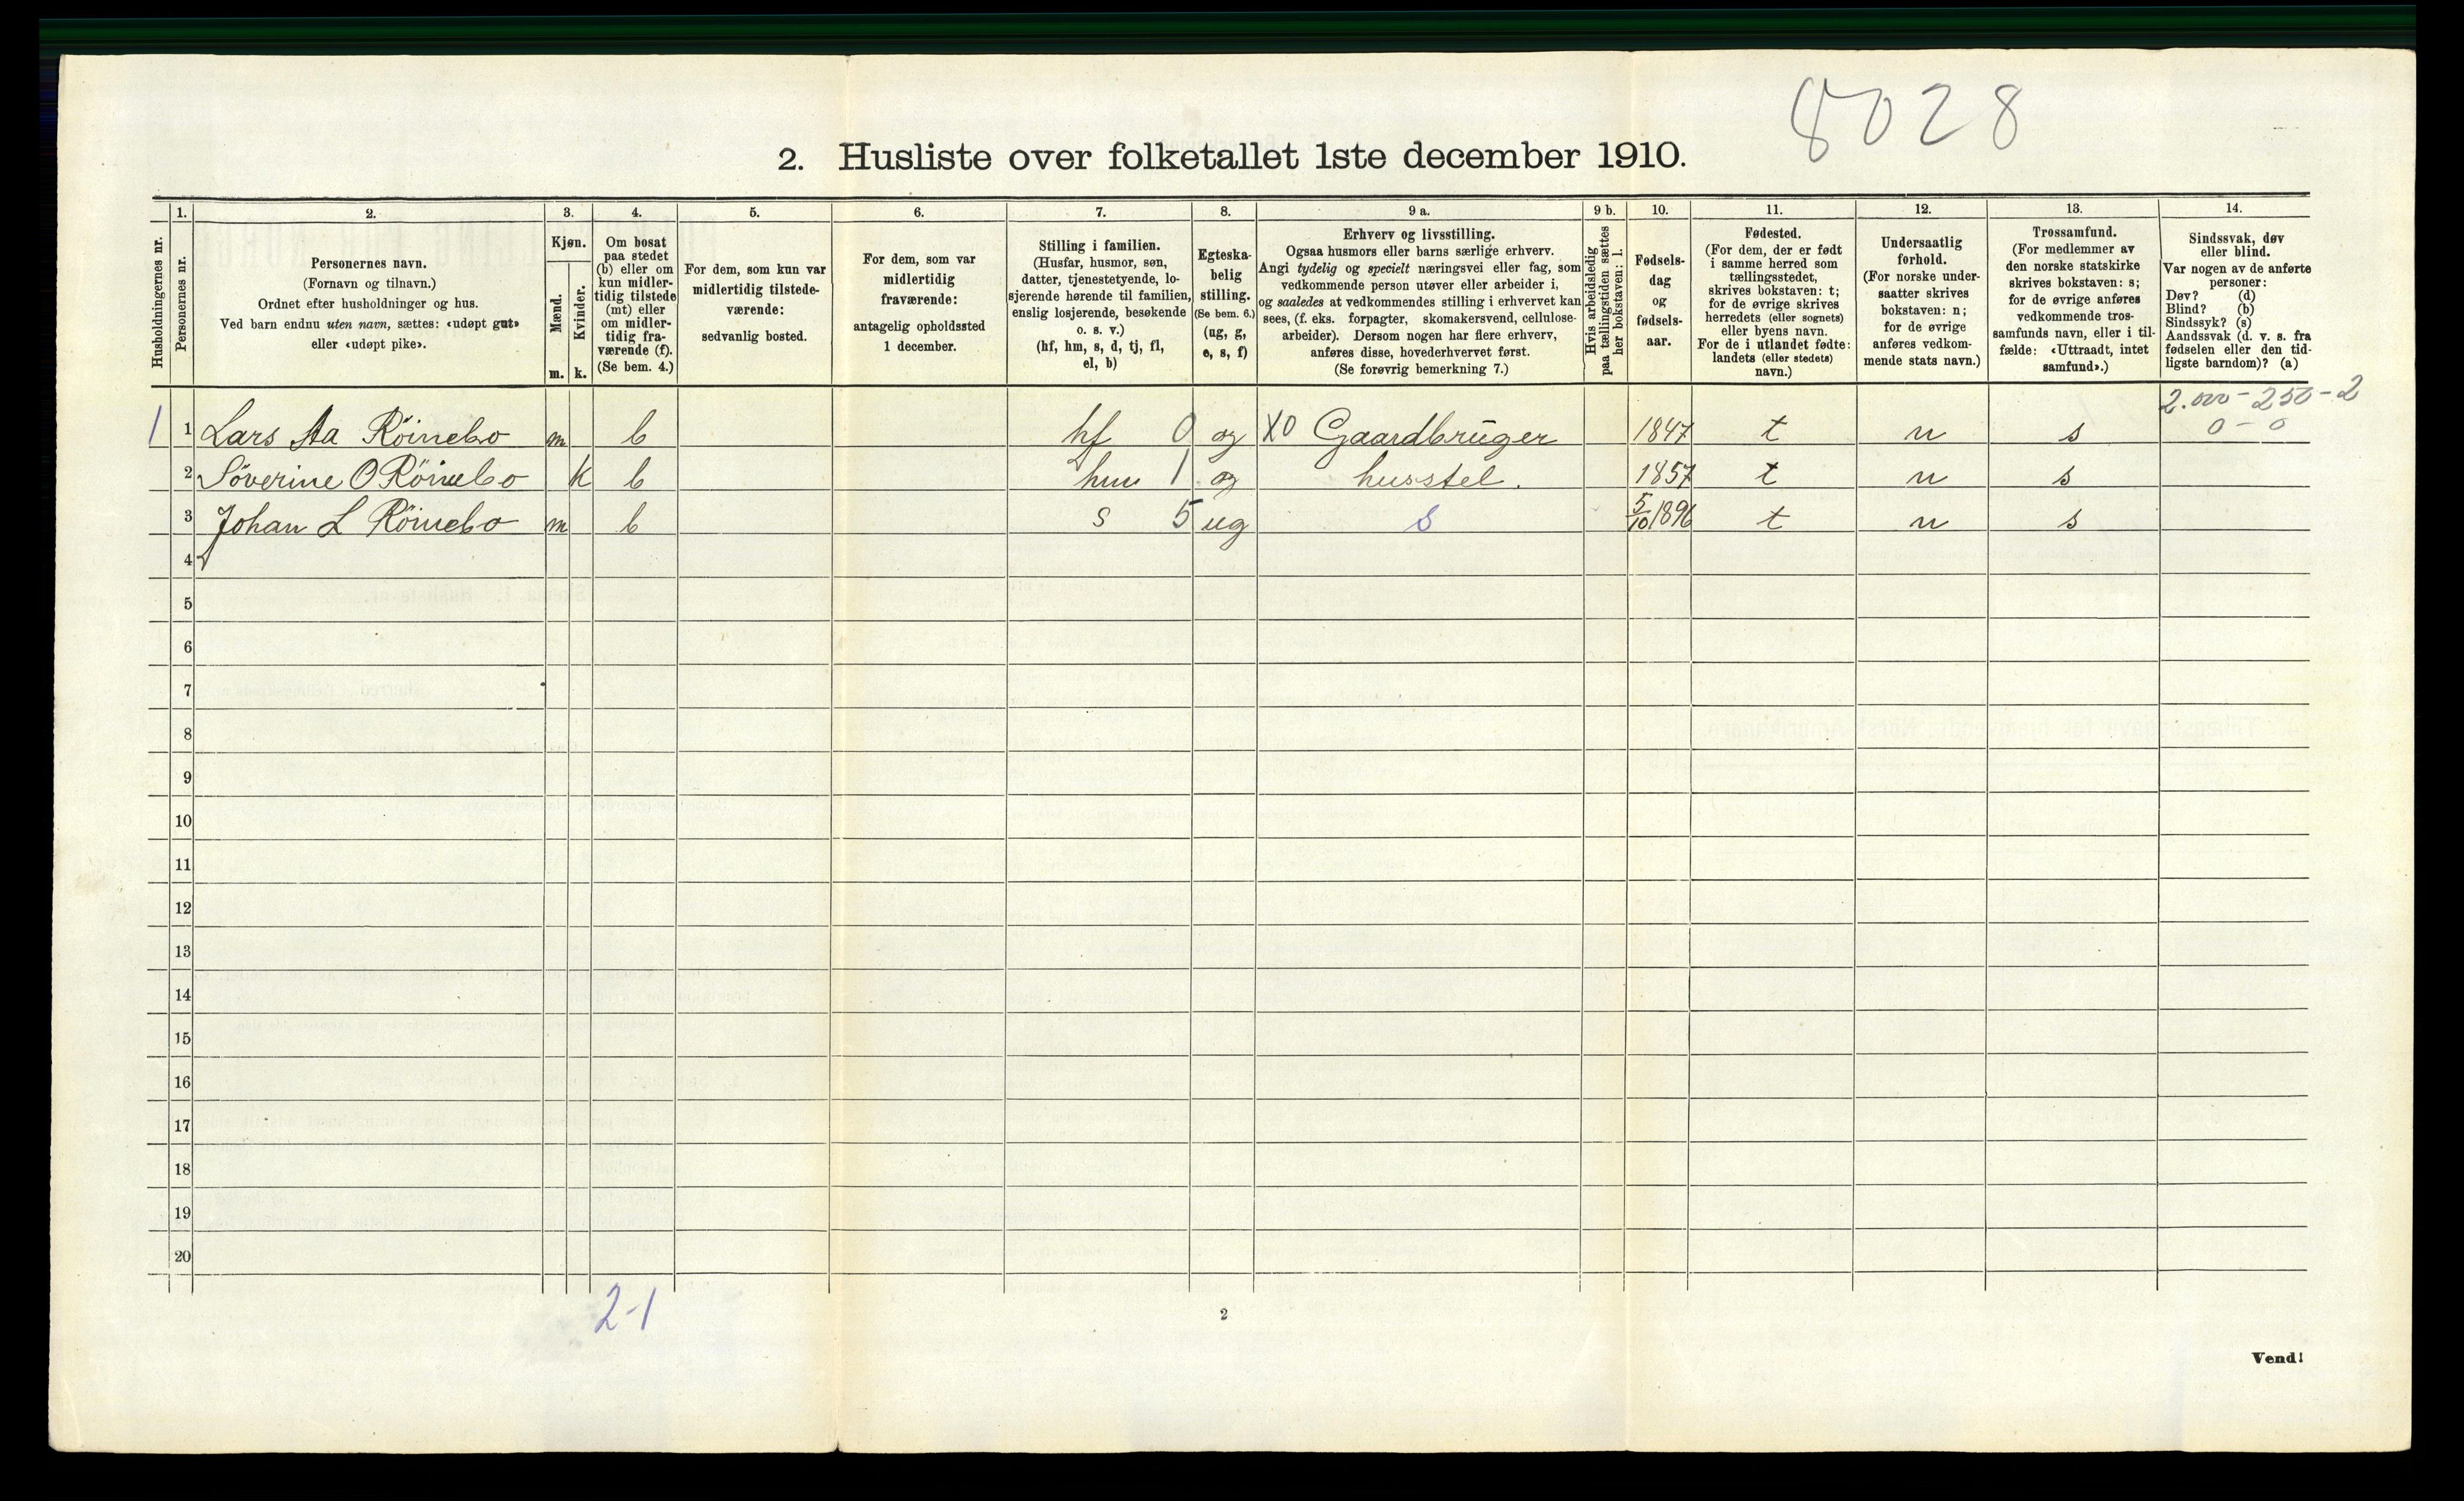 8028
2. Husliste over folketallet 1ste december 1910.
Husholdningernes nr.
1.
Personernes nr.
2.
Personernes navn.
(Fornavn og tilnavn.)
Ordnet efter husholdninger og hus.
Ved barn endnu uten navn, sættes: «udøpt gut»
eller «udøpt pike».
3.
Kjøn.
Mænd.
Kvinder.
m. k.
4.
Om bosat
paa stedet
(b) eller om
kun midler-
tidig tilstede
(mt) eller
om midler-
tidig fra-
værende (f).
(Se bem. 4.)
5.
For dem, som kun var
midlertidig tilstede-
værende:
sedvanlig bosted.
6.
For dem, som var
midlertidig
fraværende:
antagelig opholdssted
1 december.
7.
Stilling i familien.
(Husfar, husmor, søn,
datter, tjenestetyende, lo-
sjerende hørende til familien,
enslig losjerende, besøkende
o. s. v.)
(hf, hm, s, d, tj, fl,
el, b)
8.
Egteska-
belig
stilling.
(Se bem. 6.)
(ug, g,
e, s, f)
9 a.
Erhverv og livsstilling.
Ogsaa husmors eller barns særlige erhverv.
Angi tydelig og specielt næringsvei eller fag, som
vedkommende person utøver eller arbeider i,
og saaledes at vedkommendes stilling i erhvervet kan
sees, (f. eks. forpagter, skomakersvend, cellulose-
arbeider). Dersom nogen har flere erhverv,
anføres disse, hovederhvervet først.
(Se forøvrig bemerkning 7.)
9 b.
Hvis arbeidsledig
paa tællingstiden sættes
her bokstaven: l.
10.
Fødsels-
dag
og
fødsels-
aar.
11.
Fødested.
(For dem, der er født
i samme herred som
tællingsstedet,
skrives bokstaven: t;
for de øvrige skrives
herredets (eller sognets)
eller byens navn.
For de i utlandet fødte:
landets (eller stedets)
navn.)
12.
Undersaatlig
forhold.
(For norske under-
saatter skrives
bokstaven: n;
for de øvrige
anføres vedkom-
mende stats navn.)
13.
Trossamfund.
(For medlemmer av
den norske statskirke
skrives bokstaven: s;
for de øvrige anføres
vedkommende tros-
samfunds navn, eller i til-
fælde: «Uttraadt, intet
samfund».)
14.
Sindssvak, døv
eller blind.
Var nogen av de anførte
personer:
Døv? (d)
Blind? (b)
Sindssyk? (s)
Aandssvak (d. v. s. fra
fødselen eller den tid-
ligste barndom)? (a)
2.000 - 250 - 2
0 - 0
1 1 Lars Aa Röinebo m b hf 0 og X0 Gaardbrüger 1847 t n s
2 Söverine O Röinebo k b hm 1 og husstel. 1857 t n s
3 Johan L Röinebo m b s 5 ug s 5/10 1896 t n s
4
5
6
7
8
9
10
11
12
13
14
15
16
17
18
19
20
2-1
2
Vend!